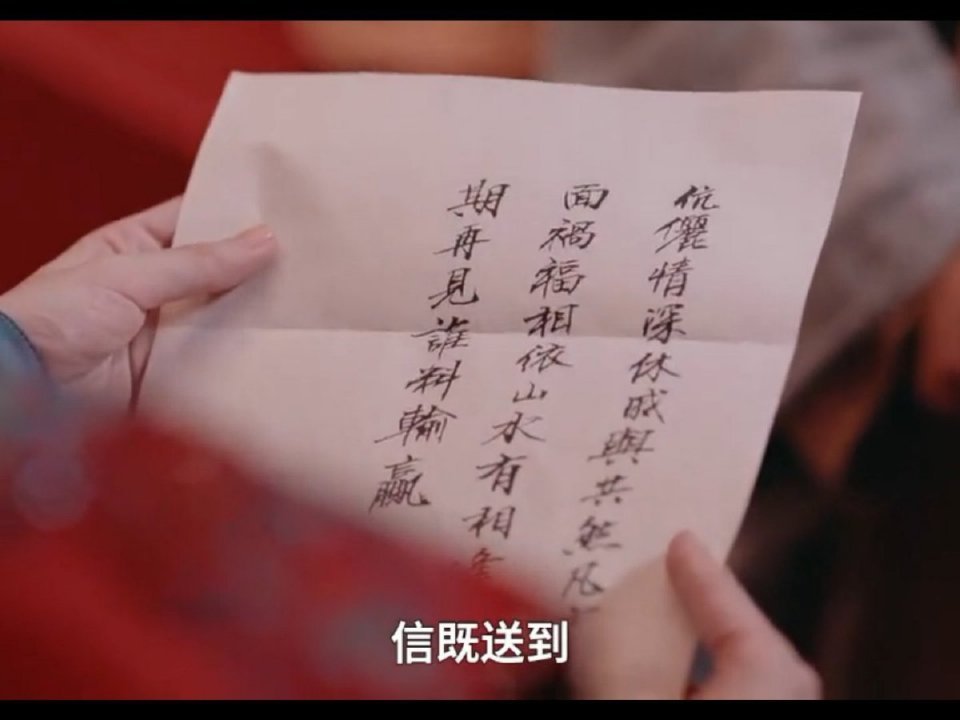 伉儷情深休戚與共然凡
面禍福相依山水有相
期再見誰料輸贏
信既送到